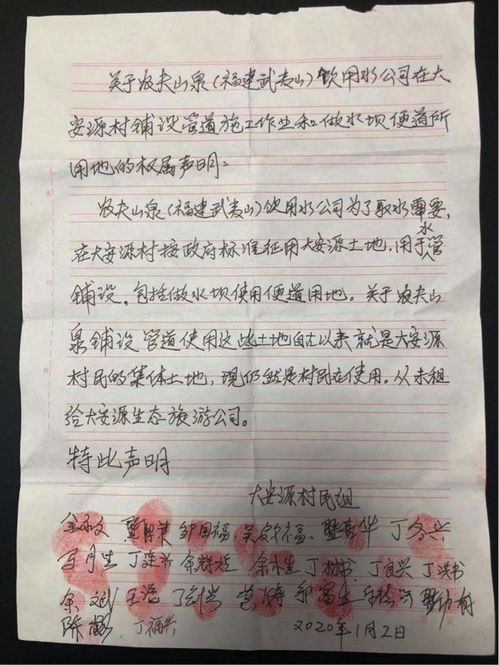 关于农夫山泉(福建武夷山)饮用水公司在大
安源村铺设管道施工作业和做水坝便道所
用地的权属声明。
农夫山泉(福建武夷山)饮用水公司为了取水需要,
在大安源村按政府标准征用大安源土地,用于水管
铺设,包括做水坝使用便道用地。关于农夫山
泉铺设管道使用这些土地自古以来就是大安源
村民的集体土地,现仍然是村民在使用。从未租
给大安源生态旅游公司。
特此声明
大安源村民组
邹国福
丁连兴 丁良兴 丁洪书
余斌 王滔
丁福兴 2020年1月2日